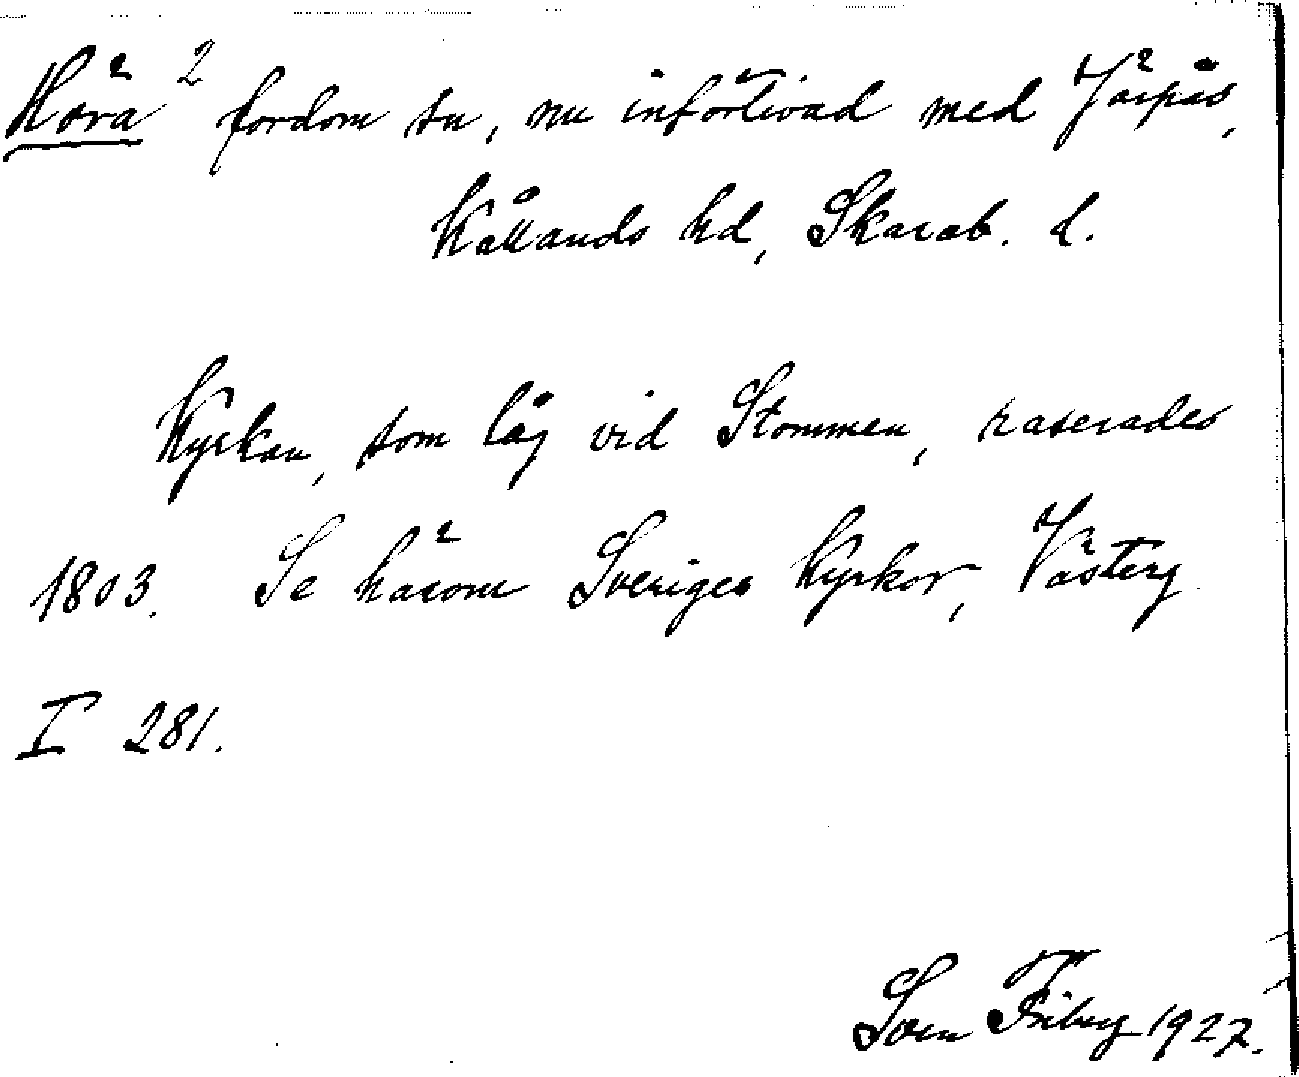 Höra 2 fordom sn, nu införlivad med Järpås,
Kållands hd, Skarab. l.
Kyrkan, som låg vid Stommen, raserades
1803. Se härom Sveriges Kyrkor, Västerg
I 281.
Sven Friberg 1927.